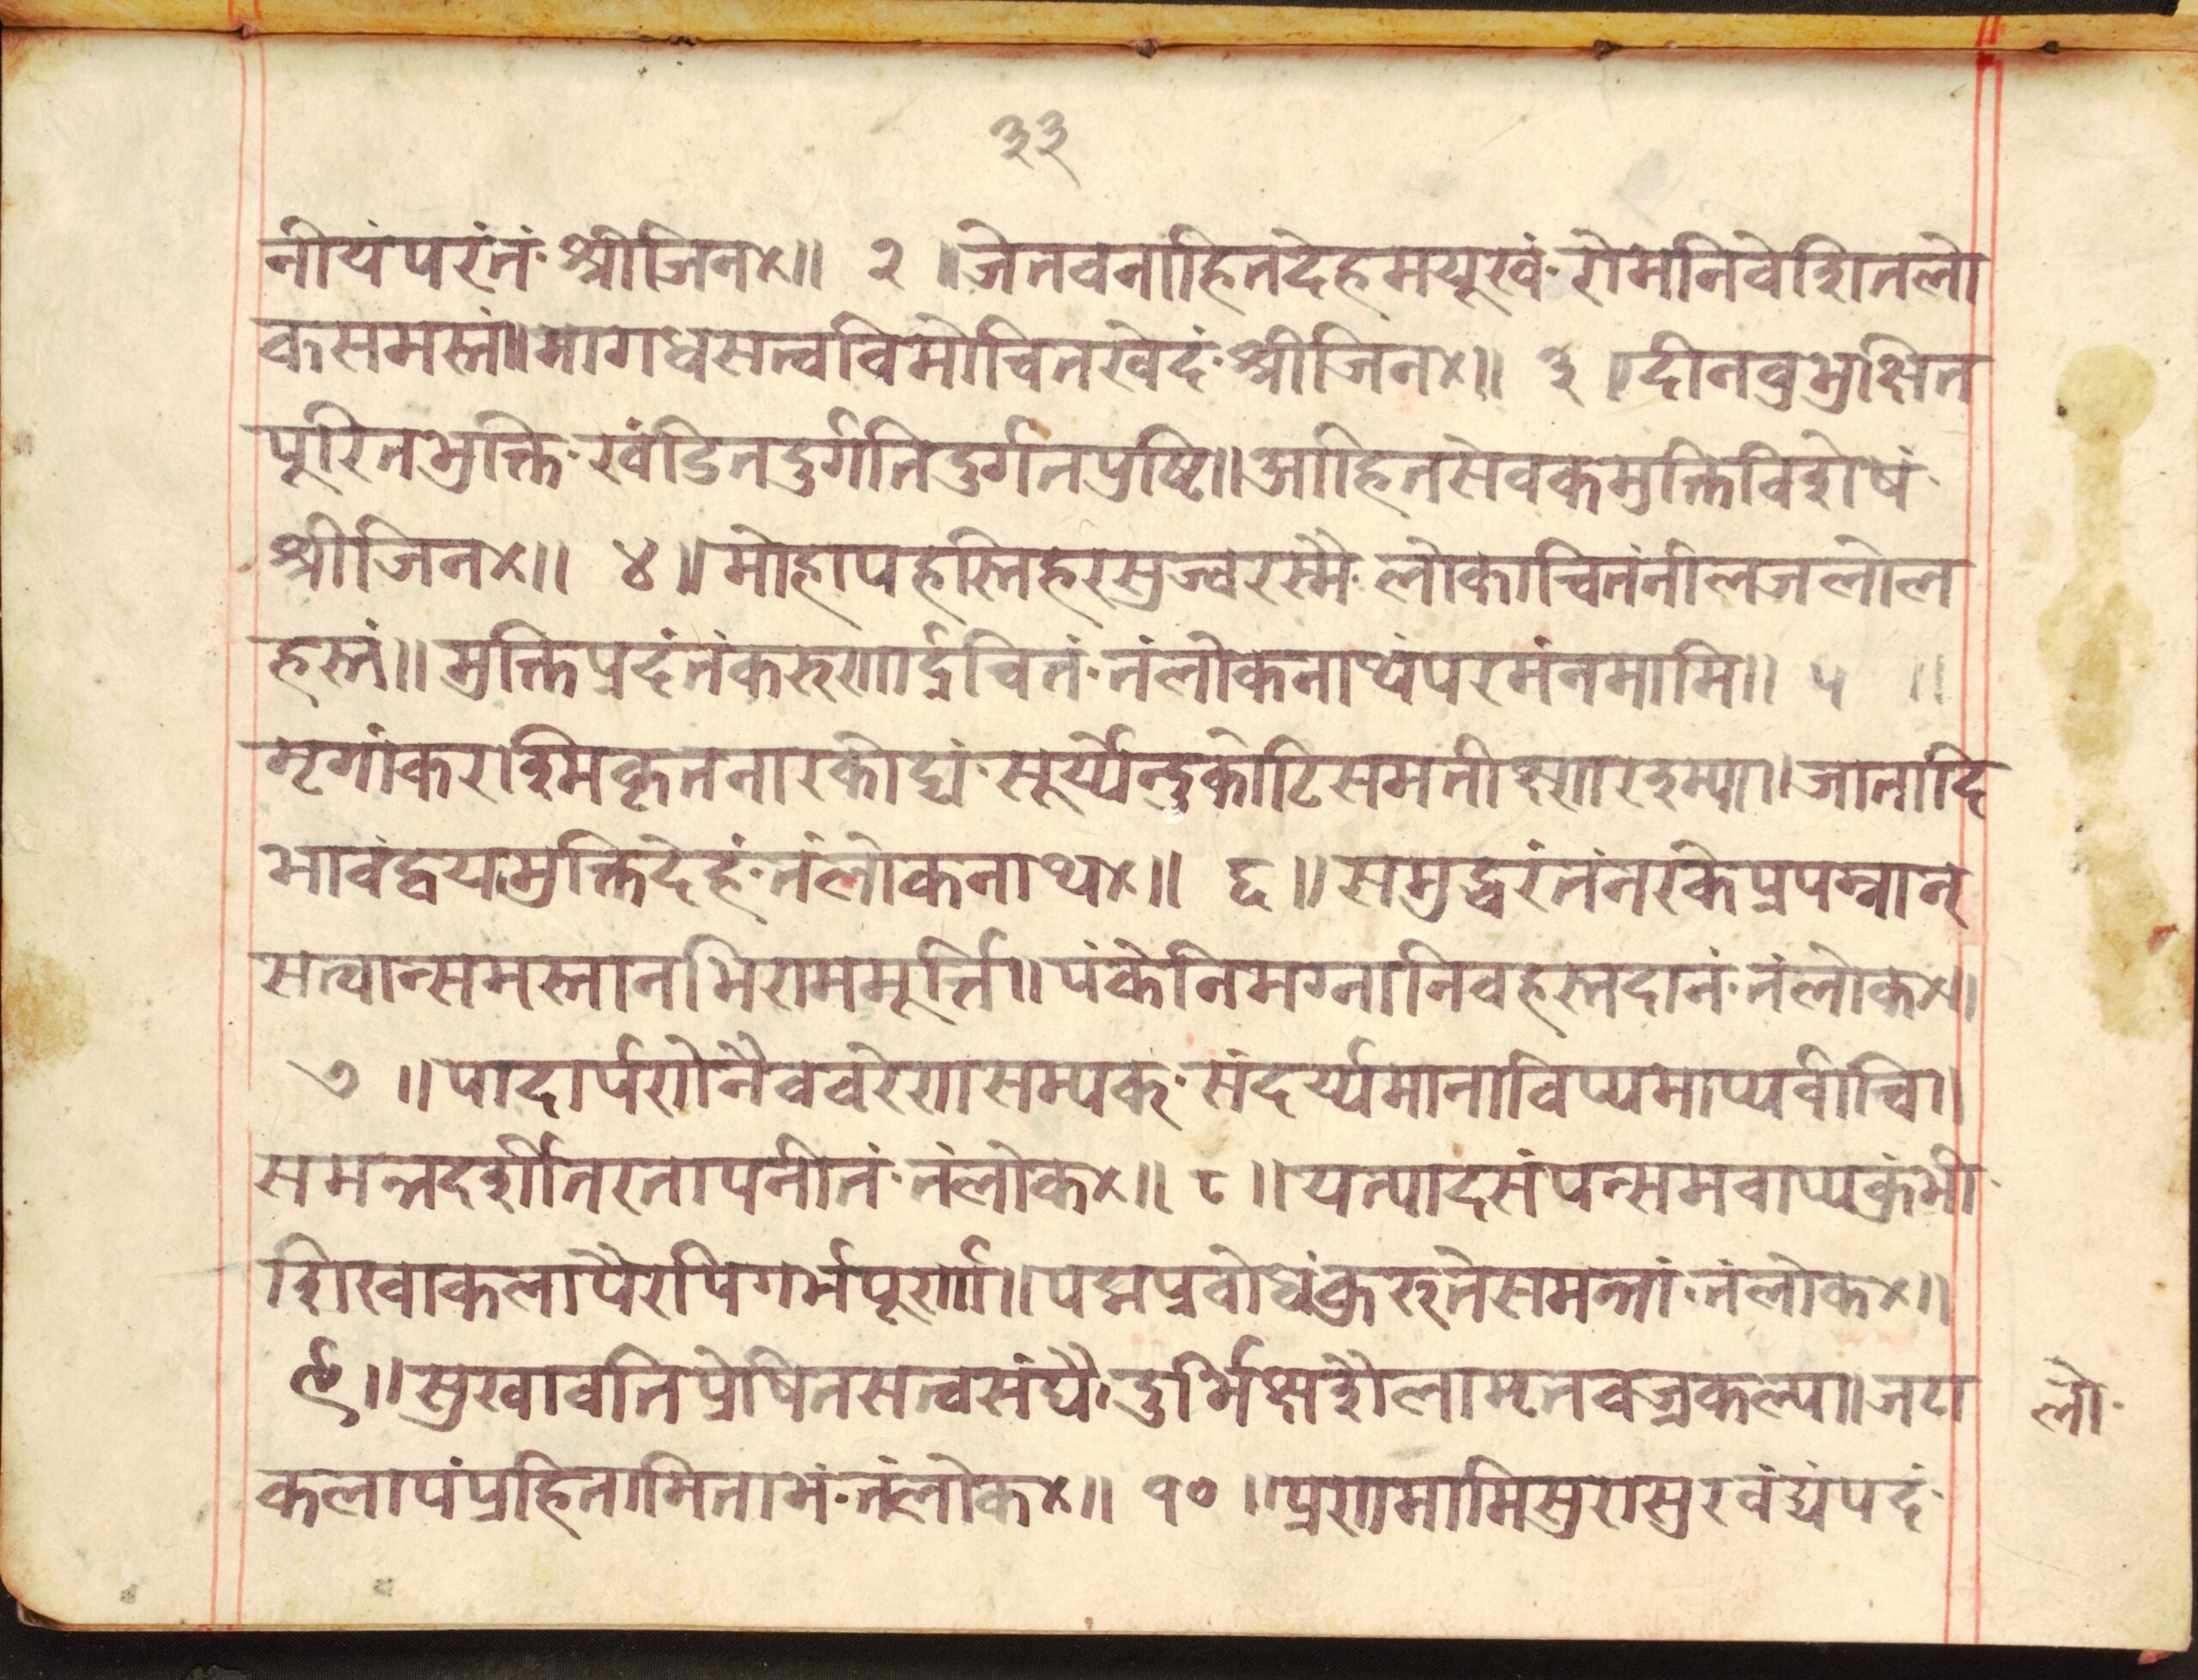 ३३
नीयंपरंतं·श्रीजिन×॥ २ ॥जेतवनाहितदेहमयूखं·रोमनिवेशितलो
कसमस्तं॥मागधसत्वविमोचितखेदं·श्रीजिन×॥ ३ ॥दीनवुभुक्षित
पूरितभुक्ति·खंडितदुर्गतिदुर्गतपुष्टि॥आहितसेवकमुक्तिविशेषं·
श्रीजिन×॥ ४ ॥मोहापहस्तिहरसुज्वरस्मै·लोकाचितंनीलजलोल
हस्तं॥मुक्तिप्रदंतंकरुणार्द्रचितं·तंलोकनाथंपरमंनमामि॥ ५ ॥
मृगांकराश्मिकृतनारकोद्यं·सूर्य्येन्दुकोटिसमतीक्ष्णरश्म्या॥जानादि
भावंद्वयमुक्तिदेहं·तंलोकनाथ×॥ ६ ॥समुद्धरंतंनरकेप्रपन्नान्
सत्वान्समस्तानभिराममूर्त्ति॥पंकेनिमग्नानिवहस्तदानं·तंलोक×॥
७ ॥पादार्पणेनैववरेणसम्पक्·संदर्य्यमानाविप्यमाप्यवीचि॥
समन्तदर्शीतरतापनीतं·तंलोक×॥ ८ ॥यत्पादसंपत्समवाप्यकुंभी·
शिखाकलापैरपिगर्भपूर्ण्णा॥पद्मप्रवोधंकुरुतेसमन्तां·तंलोक×॥
९ ॥सुखावतिप्रेषितसत्वसंघै·दुर्भिक्षशैलामृतवज्रकल्पा॥जटा लो·
कलापंप्रहितामिताभं·तंलोक×॥ १० ॥प्रणमामिसुरासुरवंद्यंपदं·